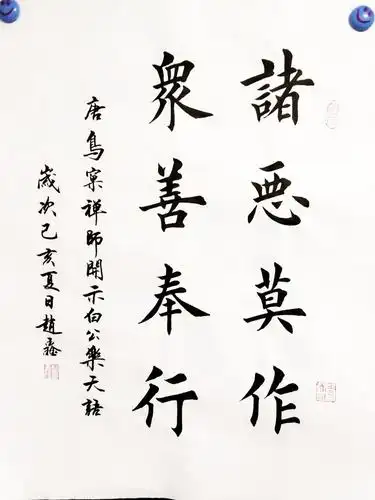 諸惡莫作
衆善奉行
唐鳥窠禅師開示白公樂天語
歲次己亥夏日趙鑫